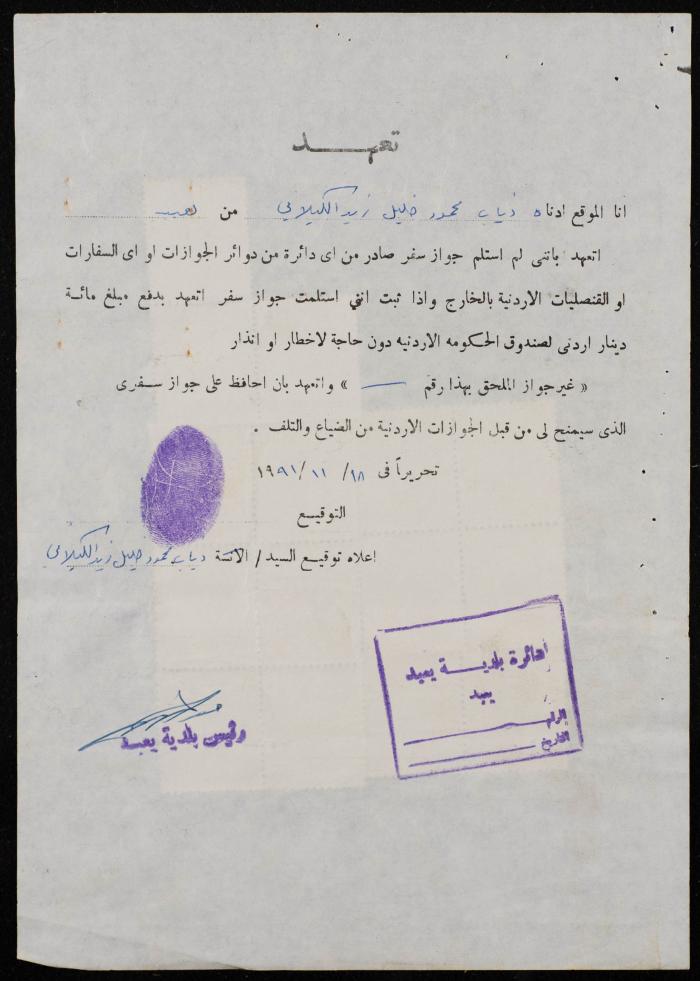 تعهد
انا الموقع ادناه ذياب محمود خليل زيد الكيلاني من يعبد
اتعهد باتنى لم استلم جواز سفر صادر من اى دائرة من دوائر الجوازات او اى السفارات
او القنصليات الاردنية بالخارج واذا ثبت انني استلمت جواز سفر اتعهد بدفع مبلغ مائة
دينار اردنى لصندوق الحكومه الاردنيه دون حاجة لاخطار او انذار
« غير جواز الملحق بهذا رقم — » واتعهد بان احافظ على جواز سفرى
الذى سيمنح لى من قبل الجوازات الاردنية من الضياع والتلف .
تحريراً فى ١٨/ ١١/ ١٩٩١
التوقيع
اعلاه توقيع السيد / الآنسة ذياب محمود خليل زيد الكيلاني
دائرة بلدية يعبد
يعبد
الرقم
التاريخ
رئيس بلدية يعبد